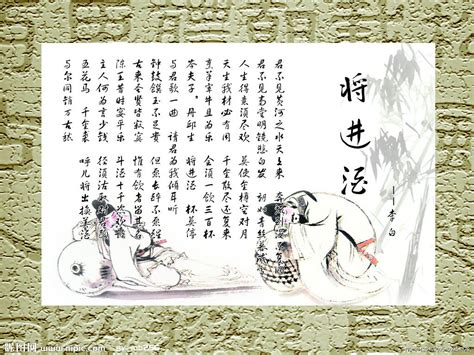 将进酒
——李白
君不见黄河之水天上来 奔流到海不复回
君不见高堂明镜悲白发 朝如青丝暮成雪
人生得意须尽欢 莫使空樽空对月
天生我材必有用 千金散尽还复来
烹羊宰牛且为乐 会须一饮三百杯
岑夫子 丹邱生 将进酒 杯莫停
与君歌一曲 请君为我倾耳听
钟鼓馔玉不足贵 但愿长醉不愿醒
古来圣贤皆寂寞 惟有饮者留其名
陈王昔时宴平乐 斗酒十千恣欢谑
主人何为言少钱 径须沽取对君酌
五花马 千金裘 呼儿将出换美酒
与尔同销万古愁
昵图网 www.nipic.com